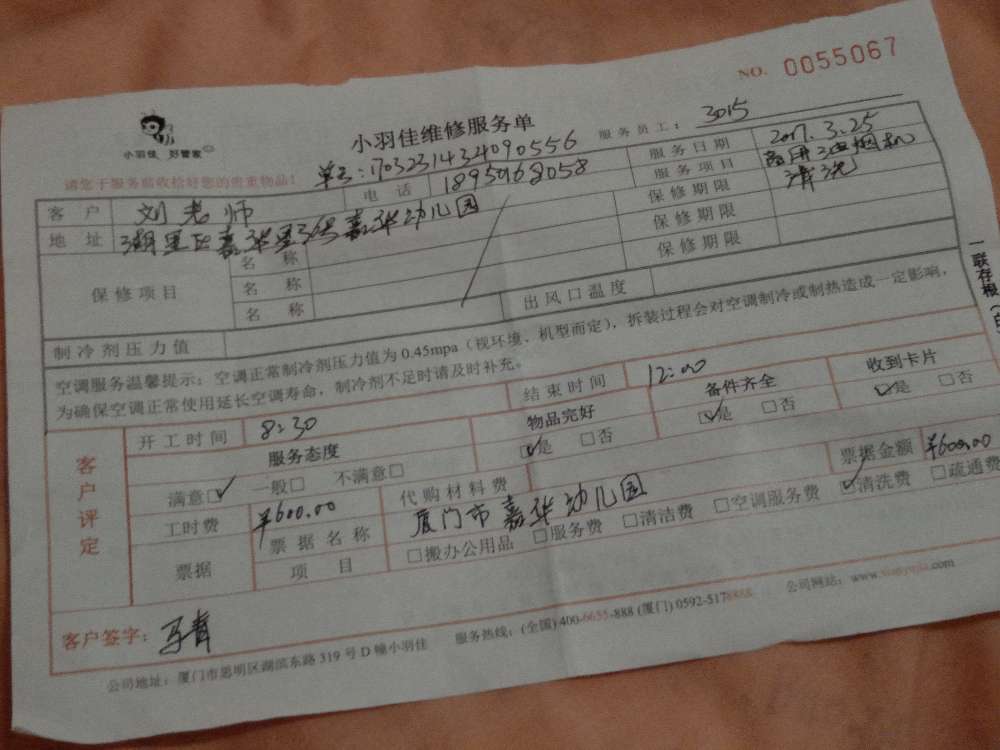 NO. 0055067
小羽佳 好管家
小羽佳维修服务单
服务员工: 3015
请您于服务前收拾好您的贵重物品!
单号:1703231434090556
服务日期 2017.3.25
客户 刘老师 电话 18950168058 服务项目 商用油烟机清洗
地址 湖里区嘉华里36号嘉华幼儿园 保修期限
保修项目 名称 保修期限
名称 保修期限
名称
制冷剂压力值 出风口温度
空调服务温馨提示:空调正常制冷剂压力值为0.45mpa(视环境、机型而定),拆装过程会对空调制冷或制热造成一定影响,
为确保空调正常使用延长空调寿命,制冷剂不足时请及时补充。
客户评定
开工时间 8:30 结束时间 12:00
服务态度 物品完好 备件齐全 收到卡片
满意□ 一般□ 不满意□ □是 □否 □是 □否 □是 □否
工时费 ¥600.00 代购材料费 票据金额 ¥600.00
票据 票据名称 厦门市嘉华幼儿园
项目 □搬办公用品 □服务费 □清洁费 □空调服务费 □清洗费 □疏通费
客户签字:
公司地址:厦门市思明区湖滨东路319号D幢小羽佳 服务热线:(全国)400-6655-888(厦门)0592-5178888 公司网站:www.xiaoyujia.com
一联存根